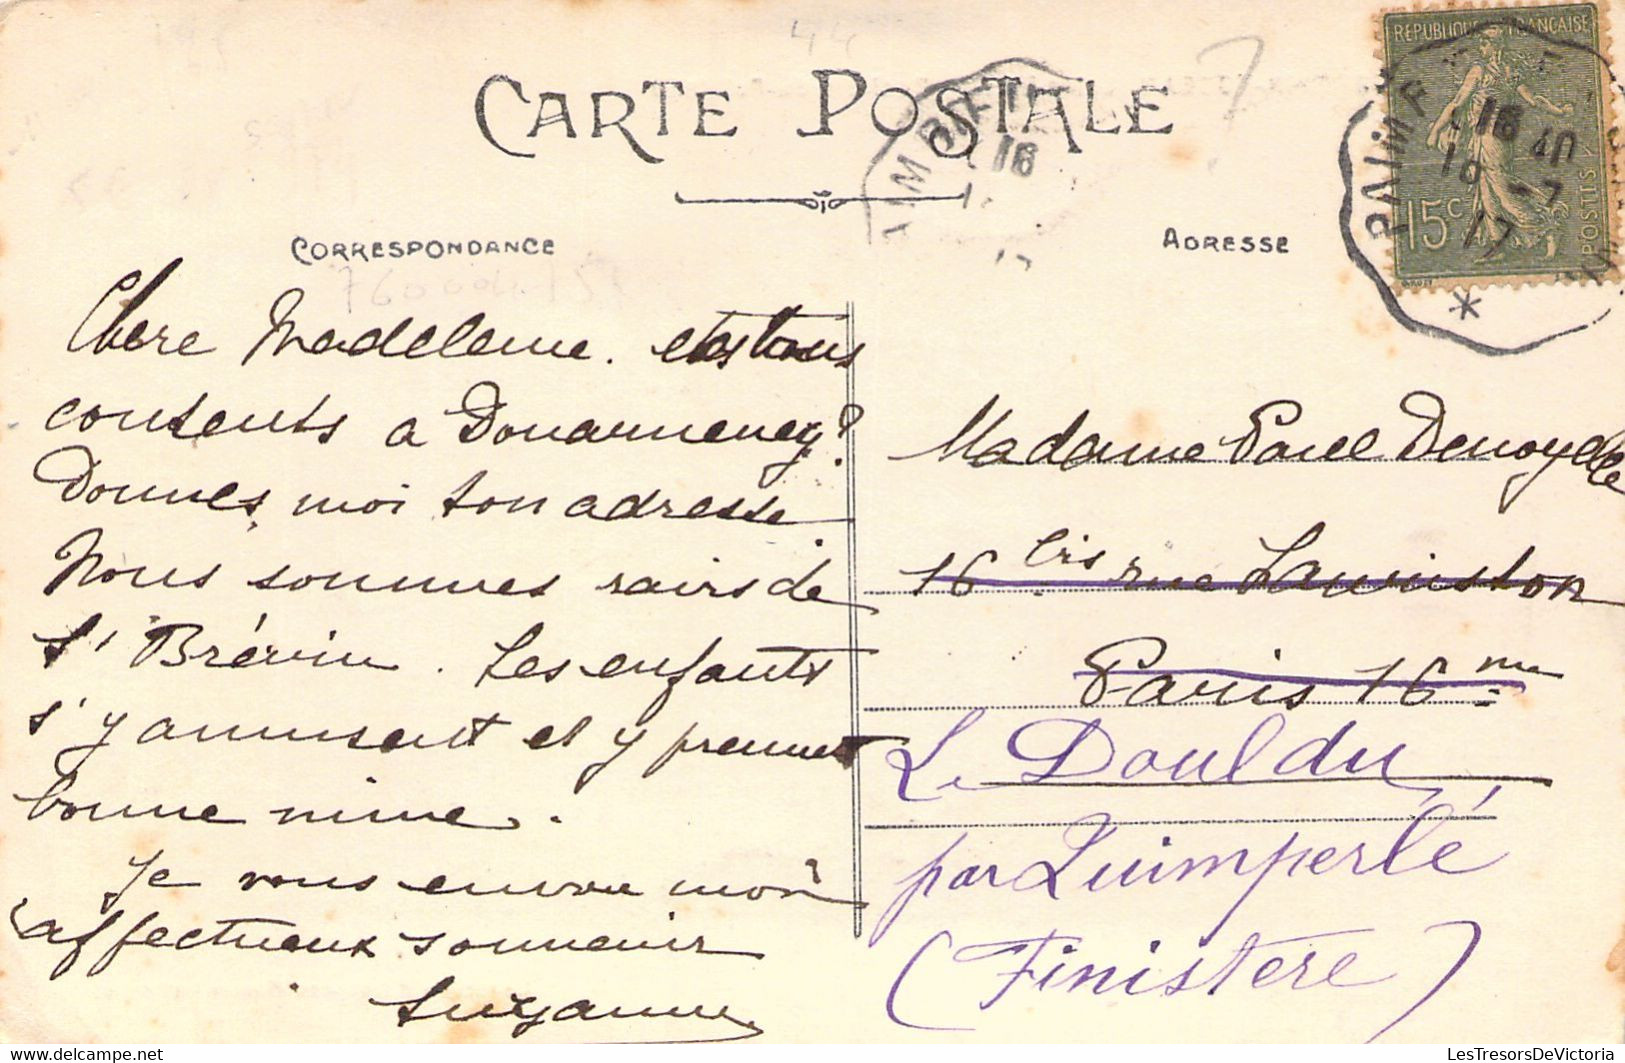 CARTE POSTALE
CORRESPONDANCE
ADRESSE
REPUBLIQUE FRANÇAISE
15c
POSTES
PAIMP
16 40
18 7
17
Chere Madeleine. etes vous
contents a Douarnenez?
Donnes moi ton adresse
Nous sommes ravis de
St Brévin. Les enfants
s'y amusent et y prennent
bonne mine.
Je vous envoie mon
affectueux souvenir
Suzanne
Madame Paul Denoyelle
16 bis rue Lauriston
Paris 16me
Le Pouldu,
par Quimperlé
(Finistere)
LesTresorsDeVictoria
delcampe.net